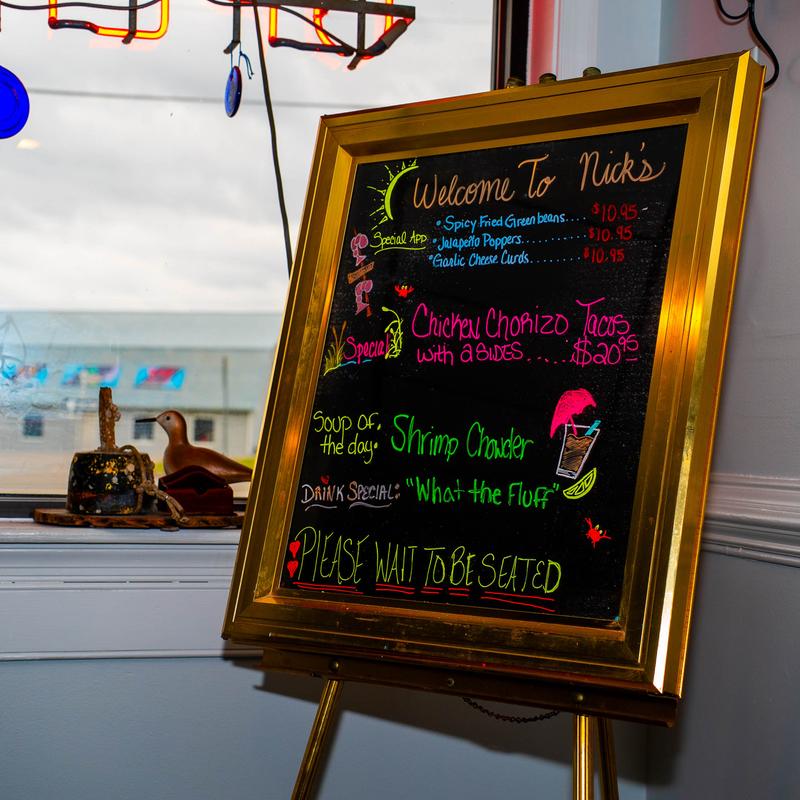 Welcome To Nick's
• Spicy Fried Green beans.... $10.95
Special App • Jalapeño Poppers.......... $10.95
• Garlic Cheese Curds........ $10.95
Chicken Chorizo Tacos
Special with 2 SIDES..... $20.95
Soup of.
the day. Shrimp Chowder
DRINK SPECIAL: "What the Fluff"
PLEASE WAIT TO BE SEATED